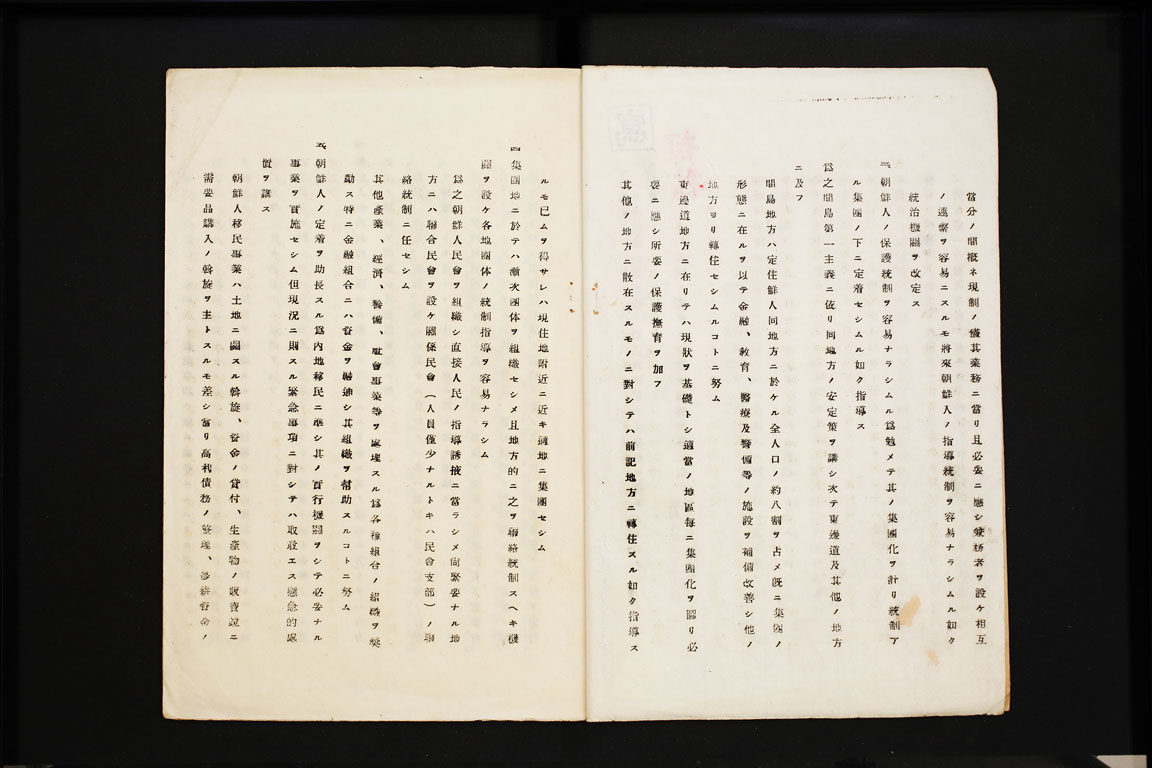 當分ノ間概ネ現制ノ儘其業務ニ當リ且必要ニ應シ兼務者ヲ設ケ相互
ノ連繫ヲ容易ニスルモ將來朝鮮人ノ指導統制ヲ容易ナラシムル如ク
統治機關ヲ改定ス
三、朝鮮人ノ保護統制ヲ容易ナラシムル爲勉メテ其ノ集團化ヲ計リ統制ア
ル集團ノ下ニ定着セシムル如ク指導ス
爲之間島第一主義ニ依リ同地方ノ安定策ヲ講シ次テ東邊道及其他ノ地方
ニ及フ
間島地方ハ定住鮮人同地方ニ於ケル全人口ノ約八割ヲ占メ既ニ集團ノ
形態ニ在ルヲ以テ金融、教育、醫療及警備等ノ施設ヲ補備改善シ他ノ
地方ヨリ轉住セシムルコトニ努ム
東邊道地方ニ在リテハ現狀ヲ基礎トシ適當ノ地區每ニ集團化ヲ圖リ必
要ニ應シ所要ノ保護撫育ヲ加フ
其他ノ地方ニ散在スルモノニ對シテハ前記地方ニ轉住スル如ク指導ス
ルモ已ムヲ得サレハ現住地附近ニ近キ適地ニ集團セシム
四、集團地ニ於テハ漸次團体ヲ組織セシメ且地方的ニ之ヲ聯絡統制スヘキ機
關ヲ設ケ各地團体ノ統制指導ヲ容易ナラシム
爲之朝鮮人民會ヲ組織シ直接人民ノ指導誘掖ニ當ラシメ尙緊要ナル地
方ニハ聯合民會ヲ設ケ關係民會（人員僅少ナルトキハ民會支部）ノ聯
絡統制ニ任セシム
其他產業、經濟、警備、社會事業等ヲ處理スル爲各種組合ノ組織ヲ獎
勵ス特ニ金融組合ニハ資金ヲ融通シ其組織ヲ幇助スルコトニ努ム
五、朝鮮人ノ定着ヲ助長スル爲內地移民ニ準シ其ノ百行機關ヲシテ必要ナル
事業ヲ實施セシム但現況ニ則スル緊急事項ニ對シテハ取敢エス應急的處
置ヲ講ス
朝鮮人移民事業ハ土地ニ關スル斡旋、資金ノ貸付、生產物ノ販賣竝ニ
需要品購入ノ斡旋ヲ主トスルモ差シ當リ高利債務ノ整理、營耕資金ノ